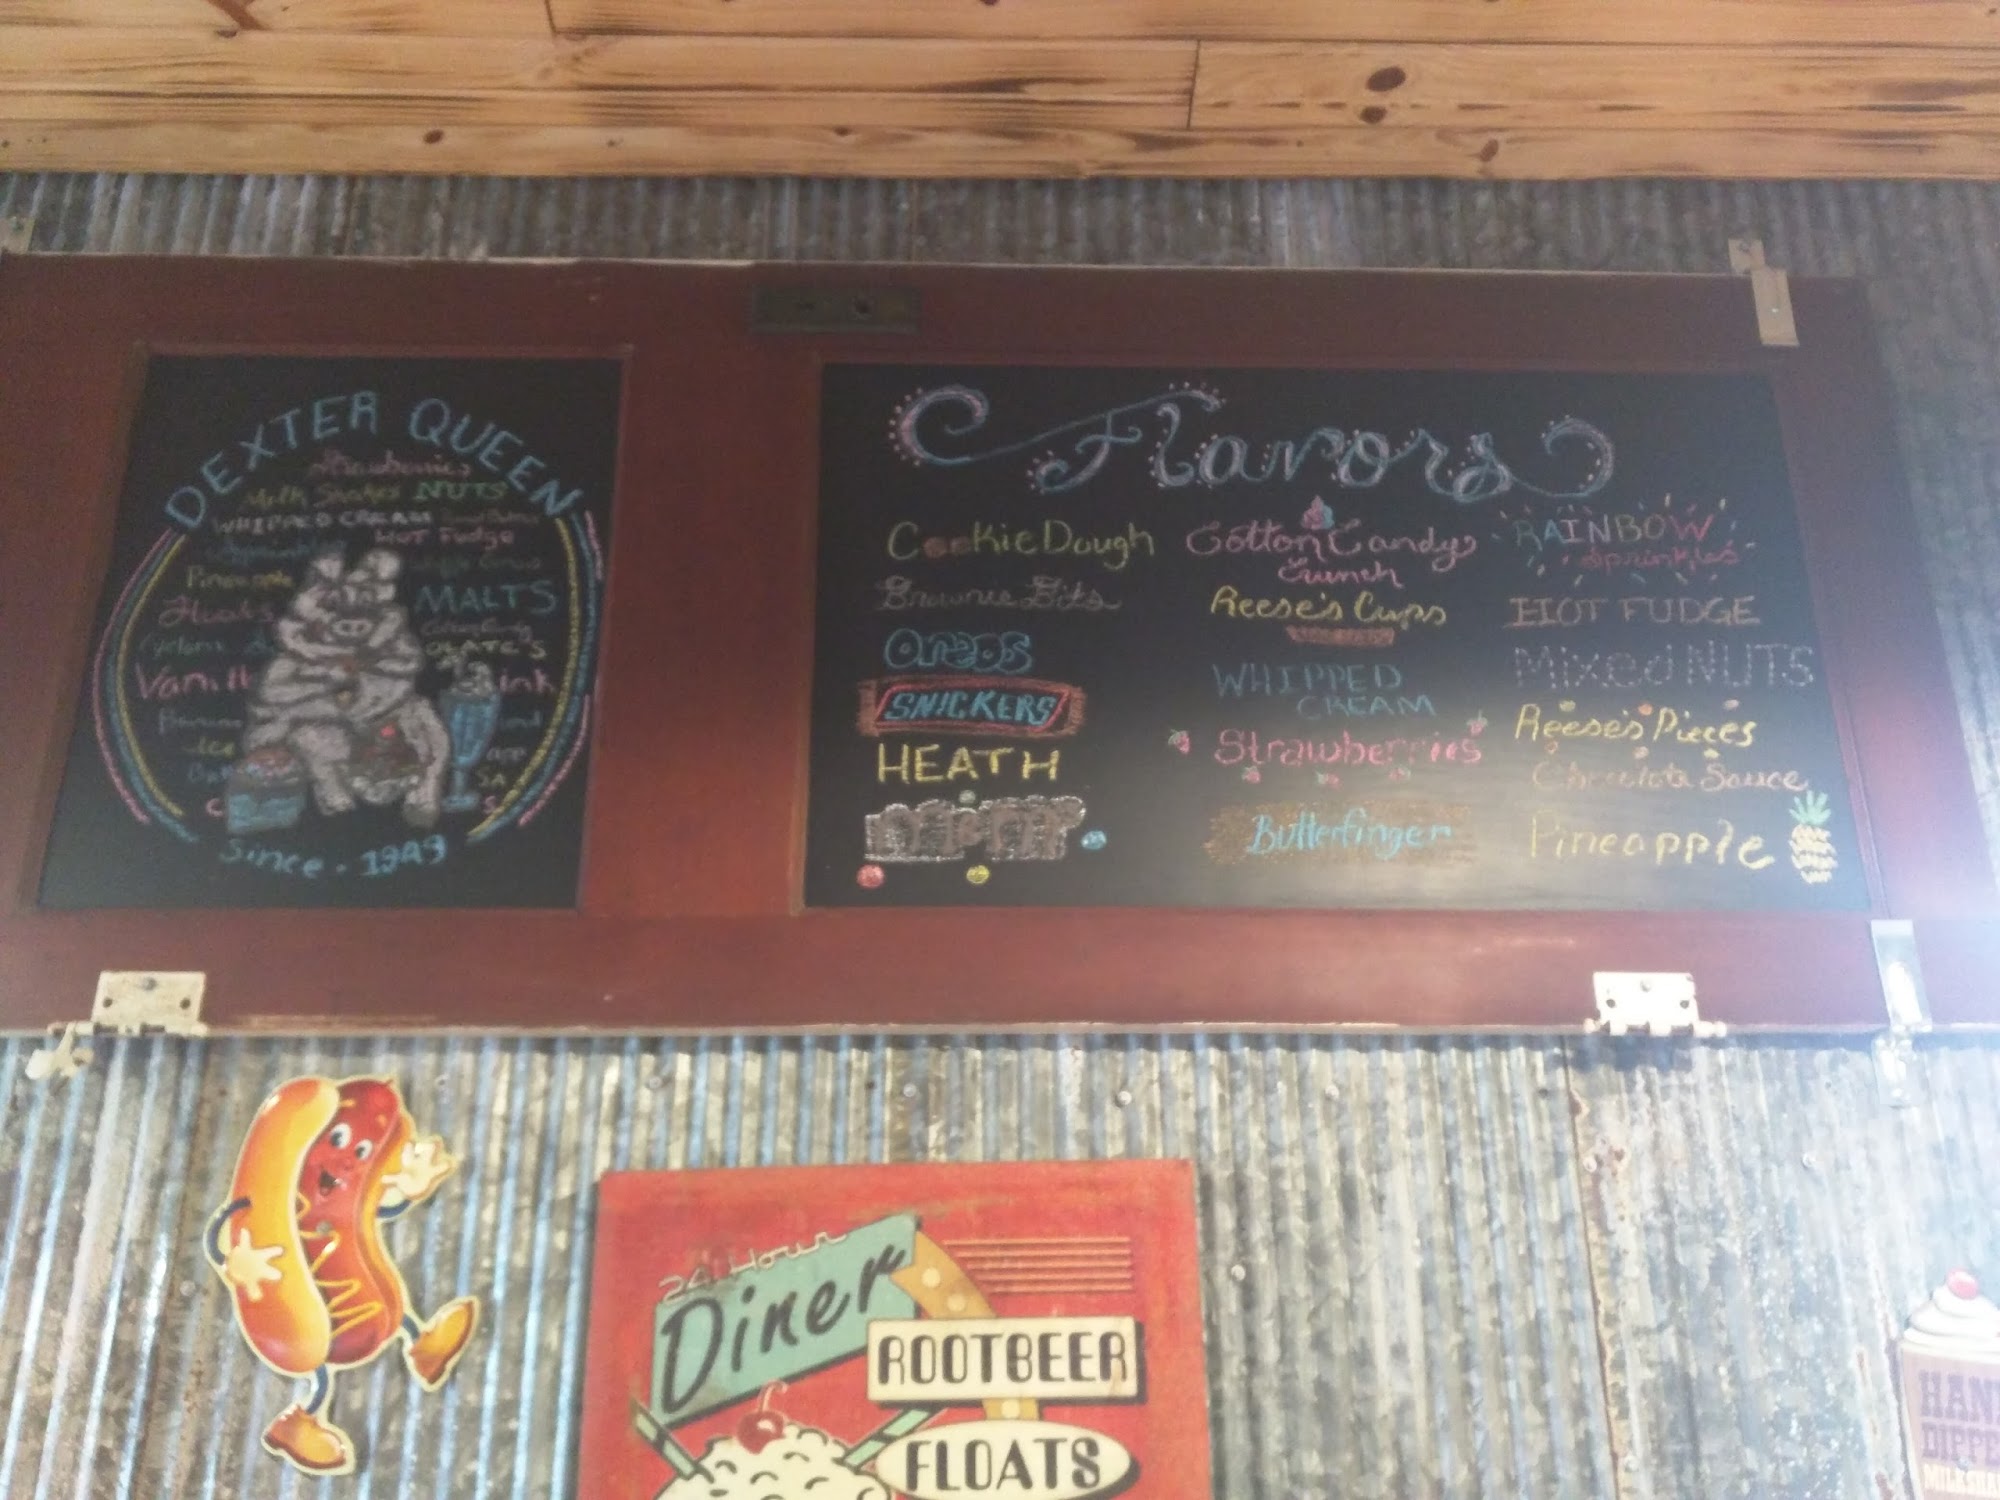 DEXTER QUEEN
Strawberries
Milk Shakes NUTS
WHIPPED CREAM
HOT Fudge
Sprinkles
Pineapple
MALTS
Heath
OLATE'S
Vanill
ink
Banana
Ice
app
SA
C
S
Since - 1949
Flavors
Cookie Dough
Brownie Bits
Oreos
SNICKERS
HEATH
Cotton Candy
Crunch
Reese's Cups
WHIPPED
CREAM
Strawberries
Butterfinger
RAINBOW
Sprinkles
HOT FUDGE
Mixed NUTS
Reese's Pieces
Chocolate Sauce
Pineapple
24 Hour
Diner
ROOTBEER
FLOATS
HAN
DIPPE
MILKSHA